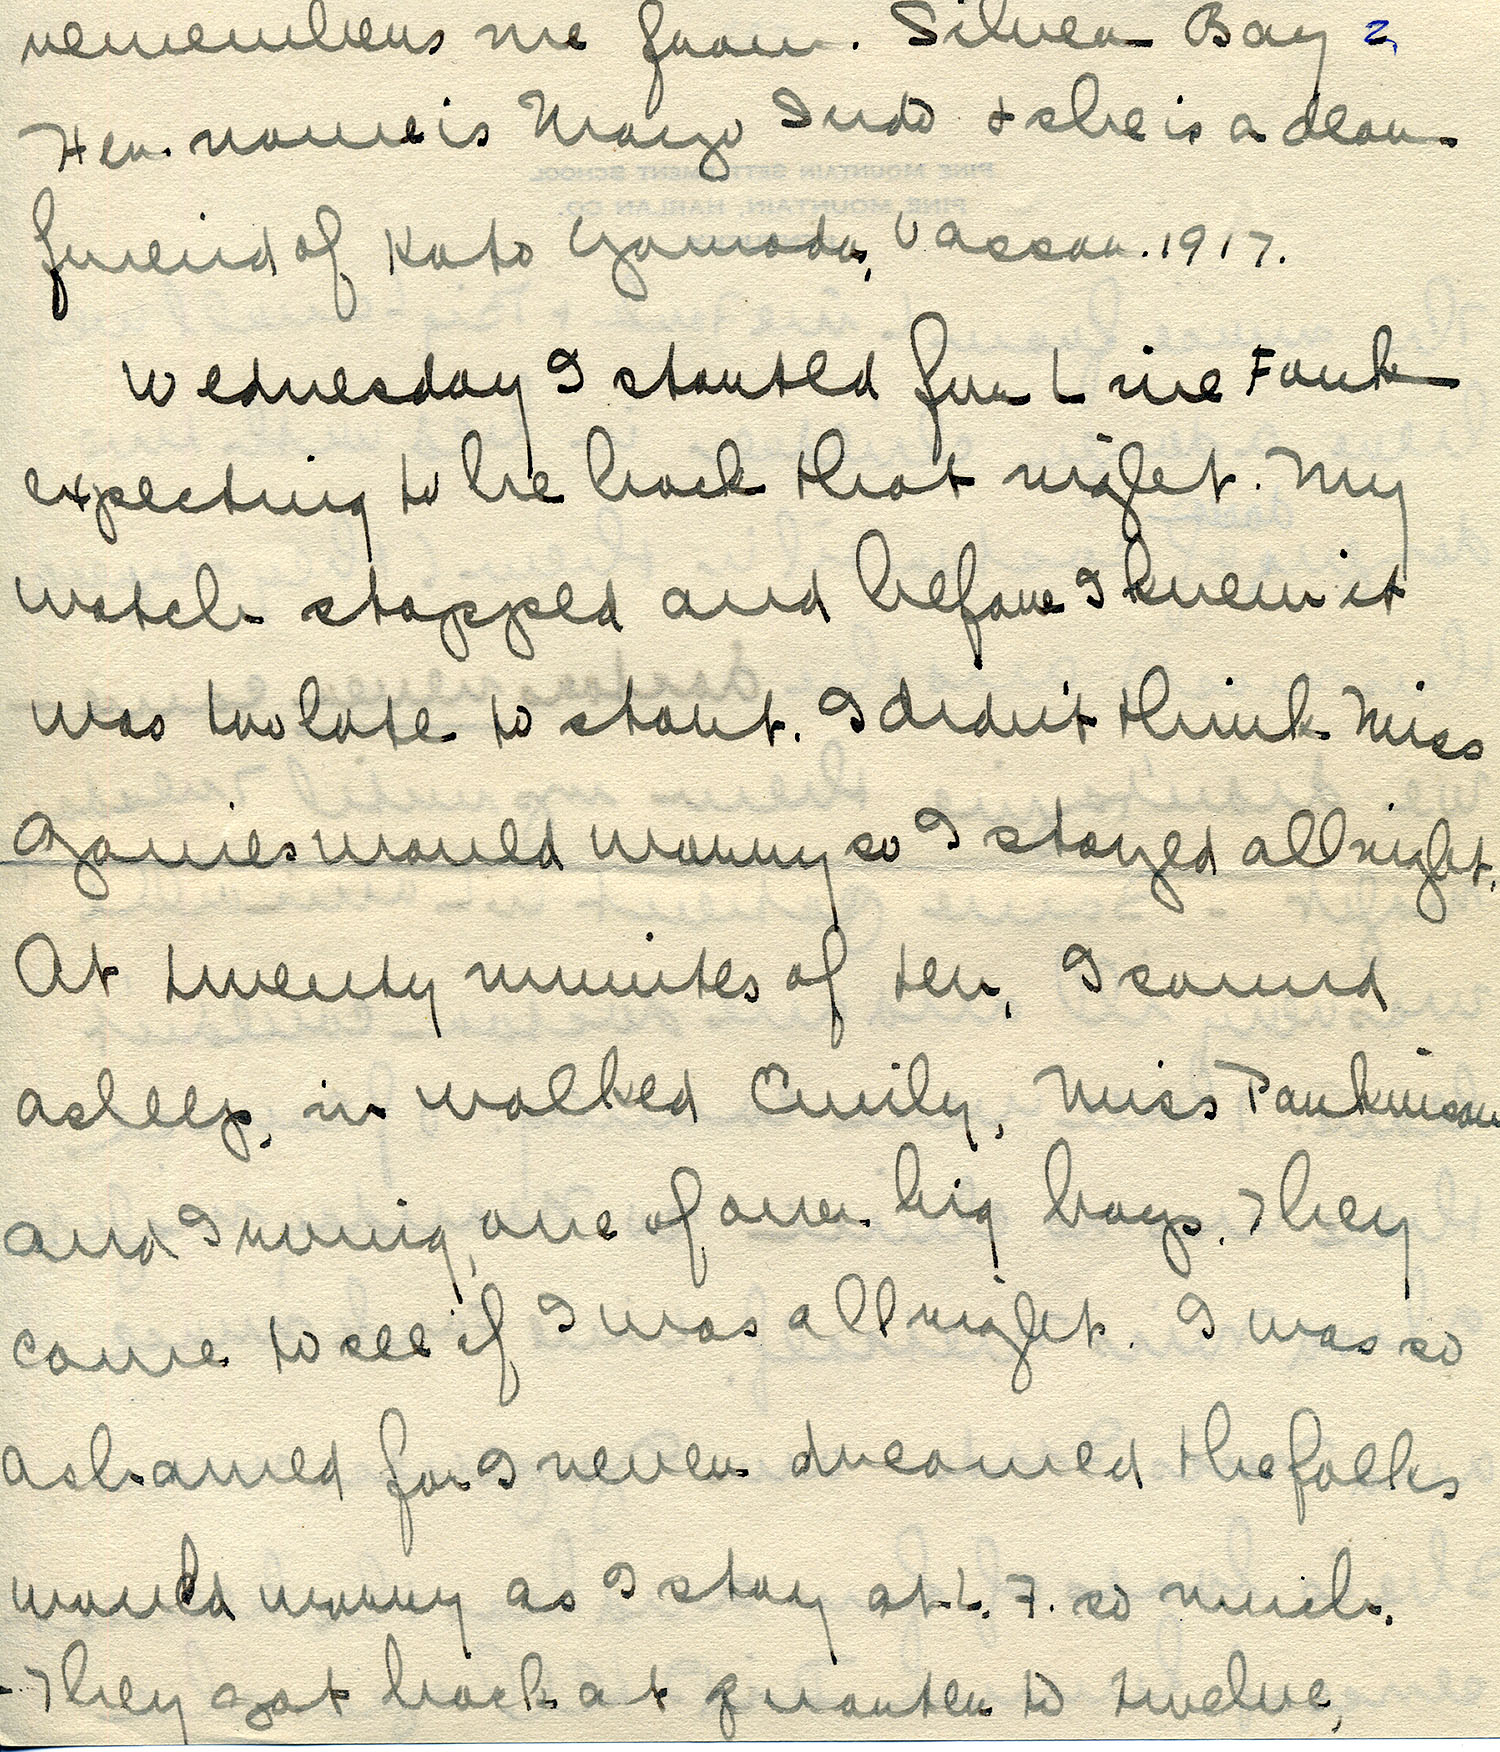 remembers me from. Silver Bay 2
Her name is Mayo Indo & she is a dear
friend of Kato Yamada, Vassar. 1917.
Wednesday I started for Line Fork
expecting to be back that night. My
watch stopped and before I knew it
was too late to start. I didn't think Miss
Gaines would worry so I stayed all night.
At twenty minutes of ten, I sound
asleep, in walked Emily, Miss Parkinson
and Irving, one of our big boys. They
came to see if I was all right. I was so
ashamed for I never dreamed the folks
would worry as I stay at L. F. so much.
They got back at quarter to twelve,
PINE MOUNTAIN SETTLEMENT SCHOOL
PINE MOUNTAIN, HARLAN CO.